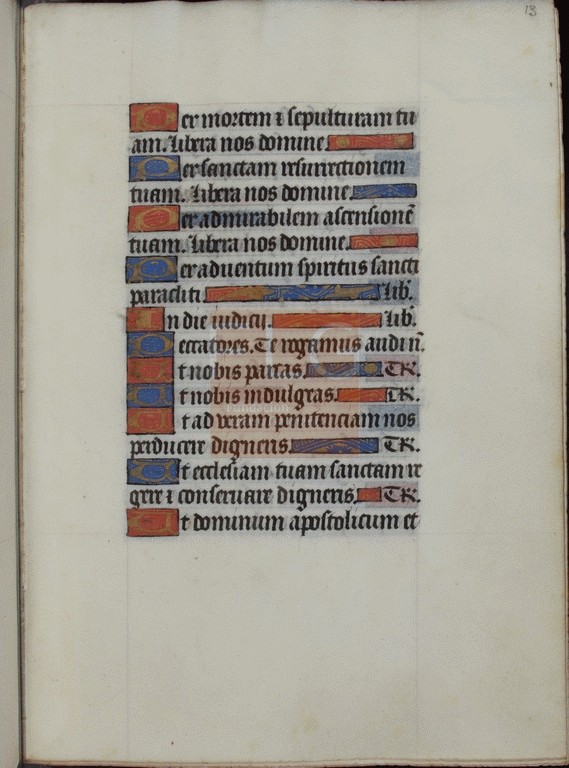 13
Per mortem ⁊ sepulturam tu
am. Libera nos domine
Per sanctam resurrectionem
tuam. Libera nos domine
Per admirabilem ascensionē
tuam. Libera nos domine.
Per aduentum spiritus sancti
paracliti. Lib.
In die iudicij. Lib.
Peccatores. Te rogamus audi n̄.
Ut nobis parcas. TR.
Ut nobis indulgeas. TR.
Ut ad veram penitenciam nos
perducere digneris. TR.
Ut ecclesiam tuam sanctam re
gere ⁊ conseruare digneris. TR.
Ut dominum apostolicum et